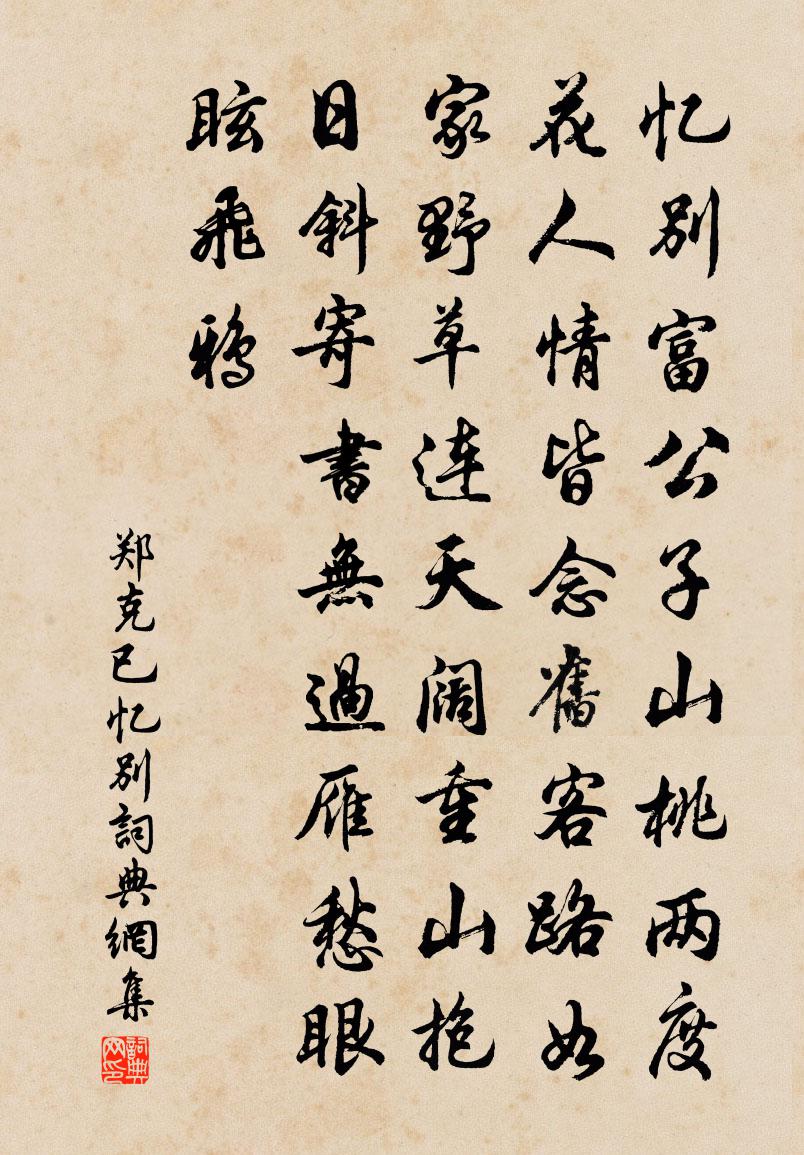 忆别富公子山桃两度
花人情皆念舊客路如
家野草连天阔重山抱
日斜寄書無過雁愁眼
眩飛鸦
郑克己忆别詞典網集
詞典网印